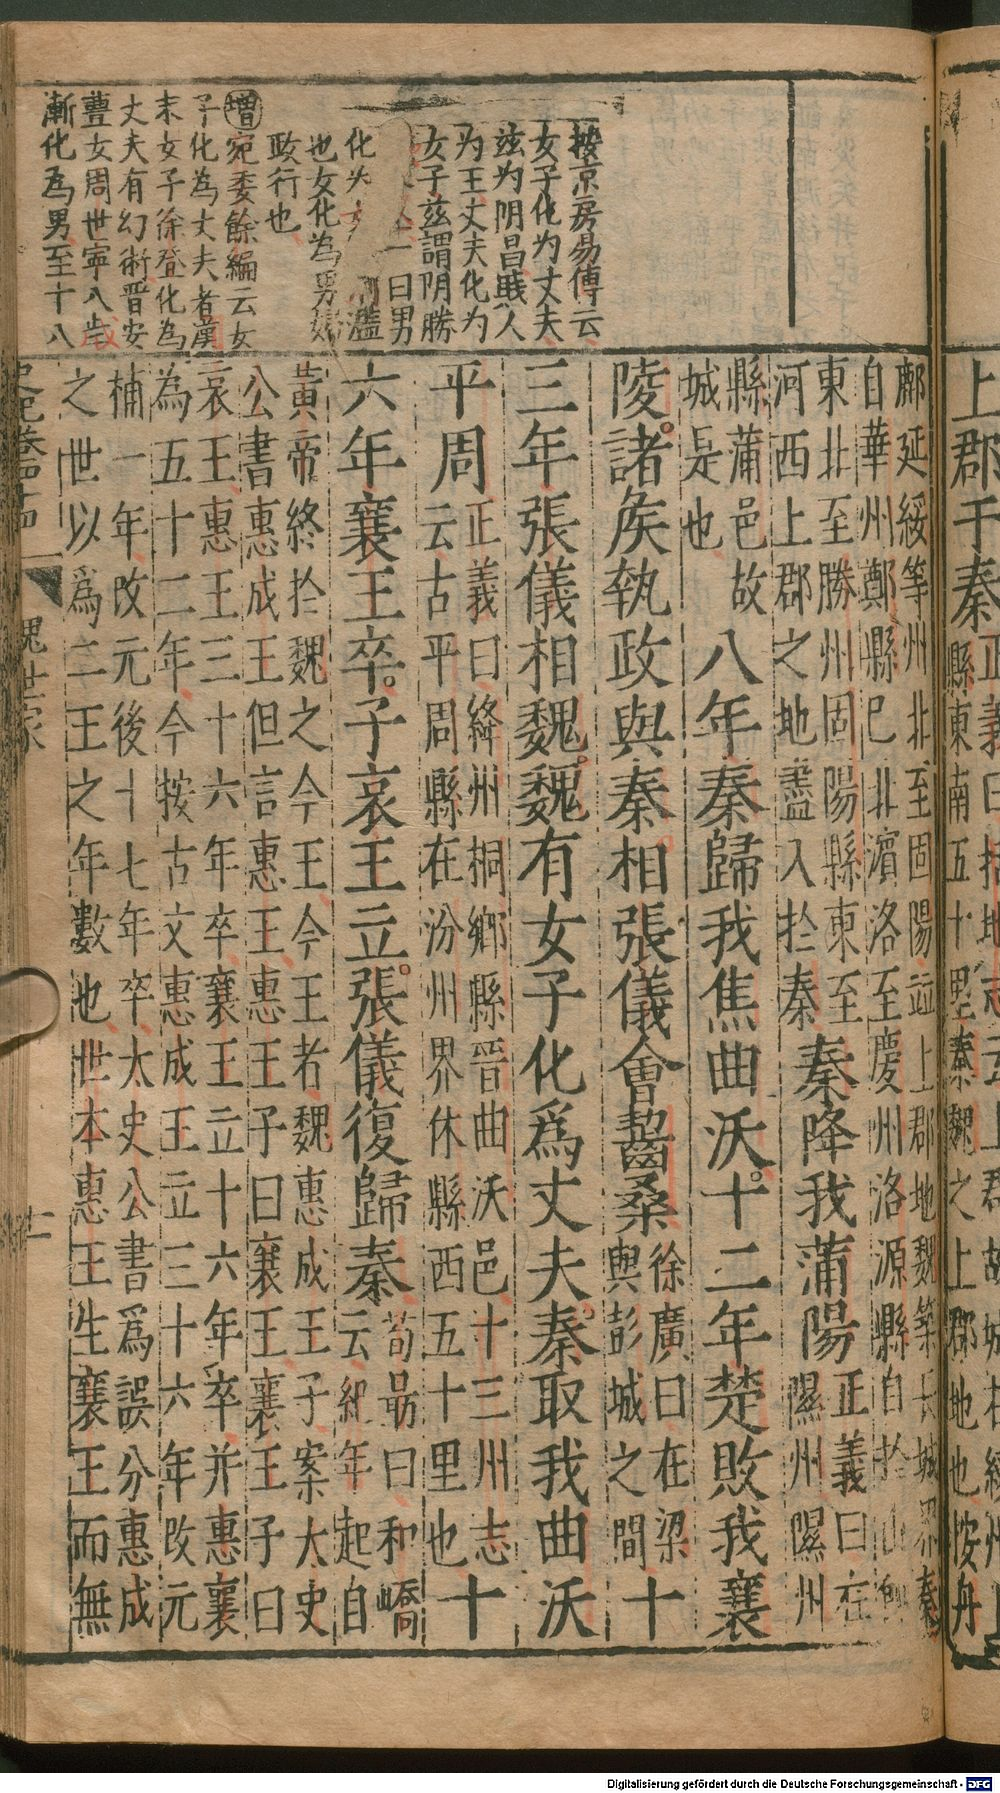 上郡于秦正義曰括地志云上郡故城在綏州
縣東南五十里秦魏之上郡地也按丹
按京房易傳云
女子化为丈夫
兹为阴昌賎人
为王丈夫化为
女子兹謂阴勝
一曰男
化 濫
也女化為男婦
政行也
增宛委餘編云女
子化為丈夫者漢
末女子徐登化為
丈夫有幻術晋安
豊女周世寧八歲
漸化為男至十八
鄜延綏等州北至固陽竝上郡地魏築長城界秦
自華州鄭縣已北濱洛至慶州洛源縣白於山
東北至勝州固陽縣東至
河西上郡之地盡入於秦
秦降我蒲陽
正義曰在
隰州隰州
縣蒲邑故
城是也
八年秦歸我焦曲沃十二年楚敗我襄
陵諸矦執政與秦相張儀會齧桑
徐廣曰在梁
與彭城之間
十
三年張儀相魏魏有女子化爲丈夫秦取我曲沃
平周
正義曰絳州桐鄉縣晉曲沃邑十三州志
云古平周縣在汾州界休縣西五十里也
十
六年襄王卒子哀王立張儀復歸秦
荀勗曰和嶠
云紀年起自
黃帝終於魏之今王今王者魏惠成王子案太史
公書惠成王但言惠王惠王子曰襄王襄王子曰
哀王惠王三十六年卒襄王立十六年卒并惠襄
為五十二年今按古文惠成王立三十六年改元
稱一年改元後十七年卒太史公書爲誤分惠成
之世以爲二王之年數也世本惠王生襄王而無
史記卷四十四
魏世家
十一
Digitalisierung gefördert durch die Deutsche Forschungsgemeinschaft - DFG